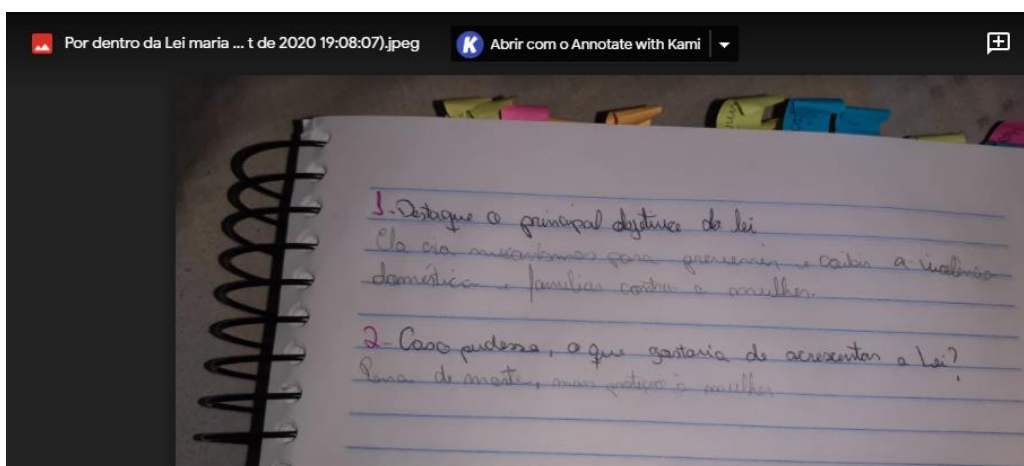 Por dentro da Lei maria ... t de 2020 19:08:07).jpeg
K Abrir com o Annotate with Kami
1-Destaque o principal objetivo da lei
Ela cria mecanismos para prevenir e coibir a violência
doméstica e familiar contra a mulher.
2-Caso pudesse, o que gostaria de acrescentar a Lei?
Pena de morte, mais proteção à mulher